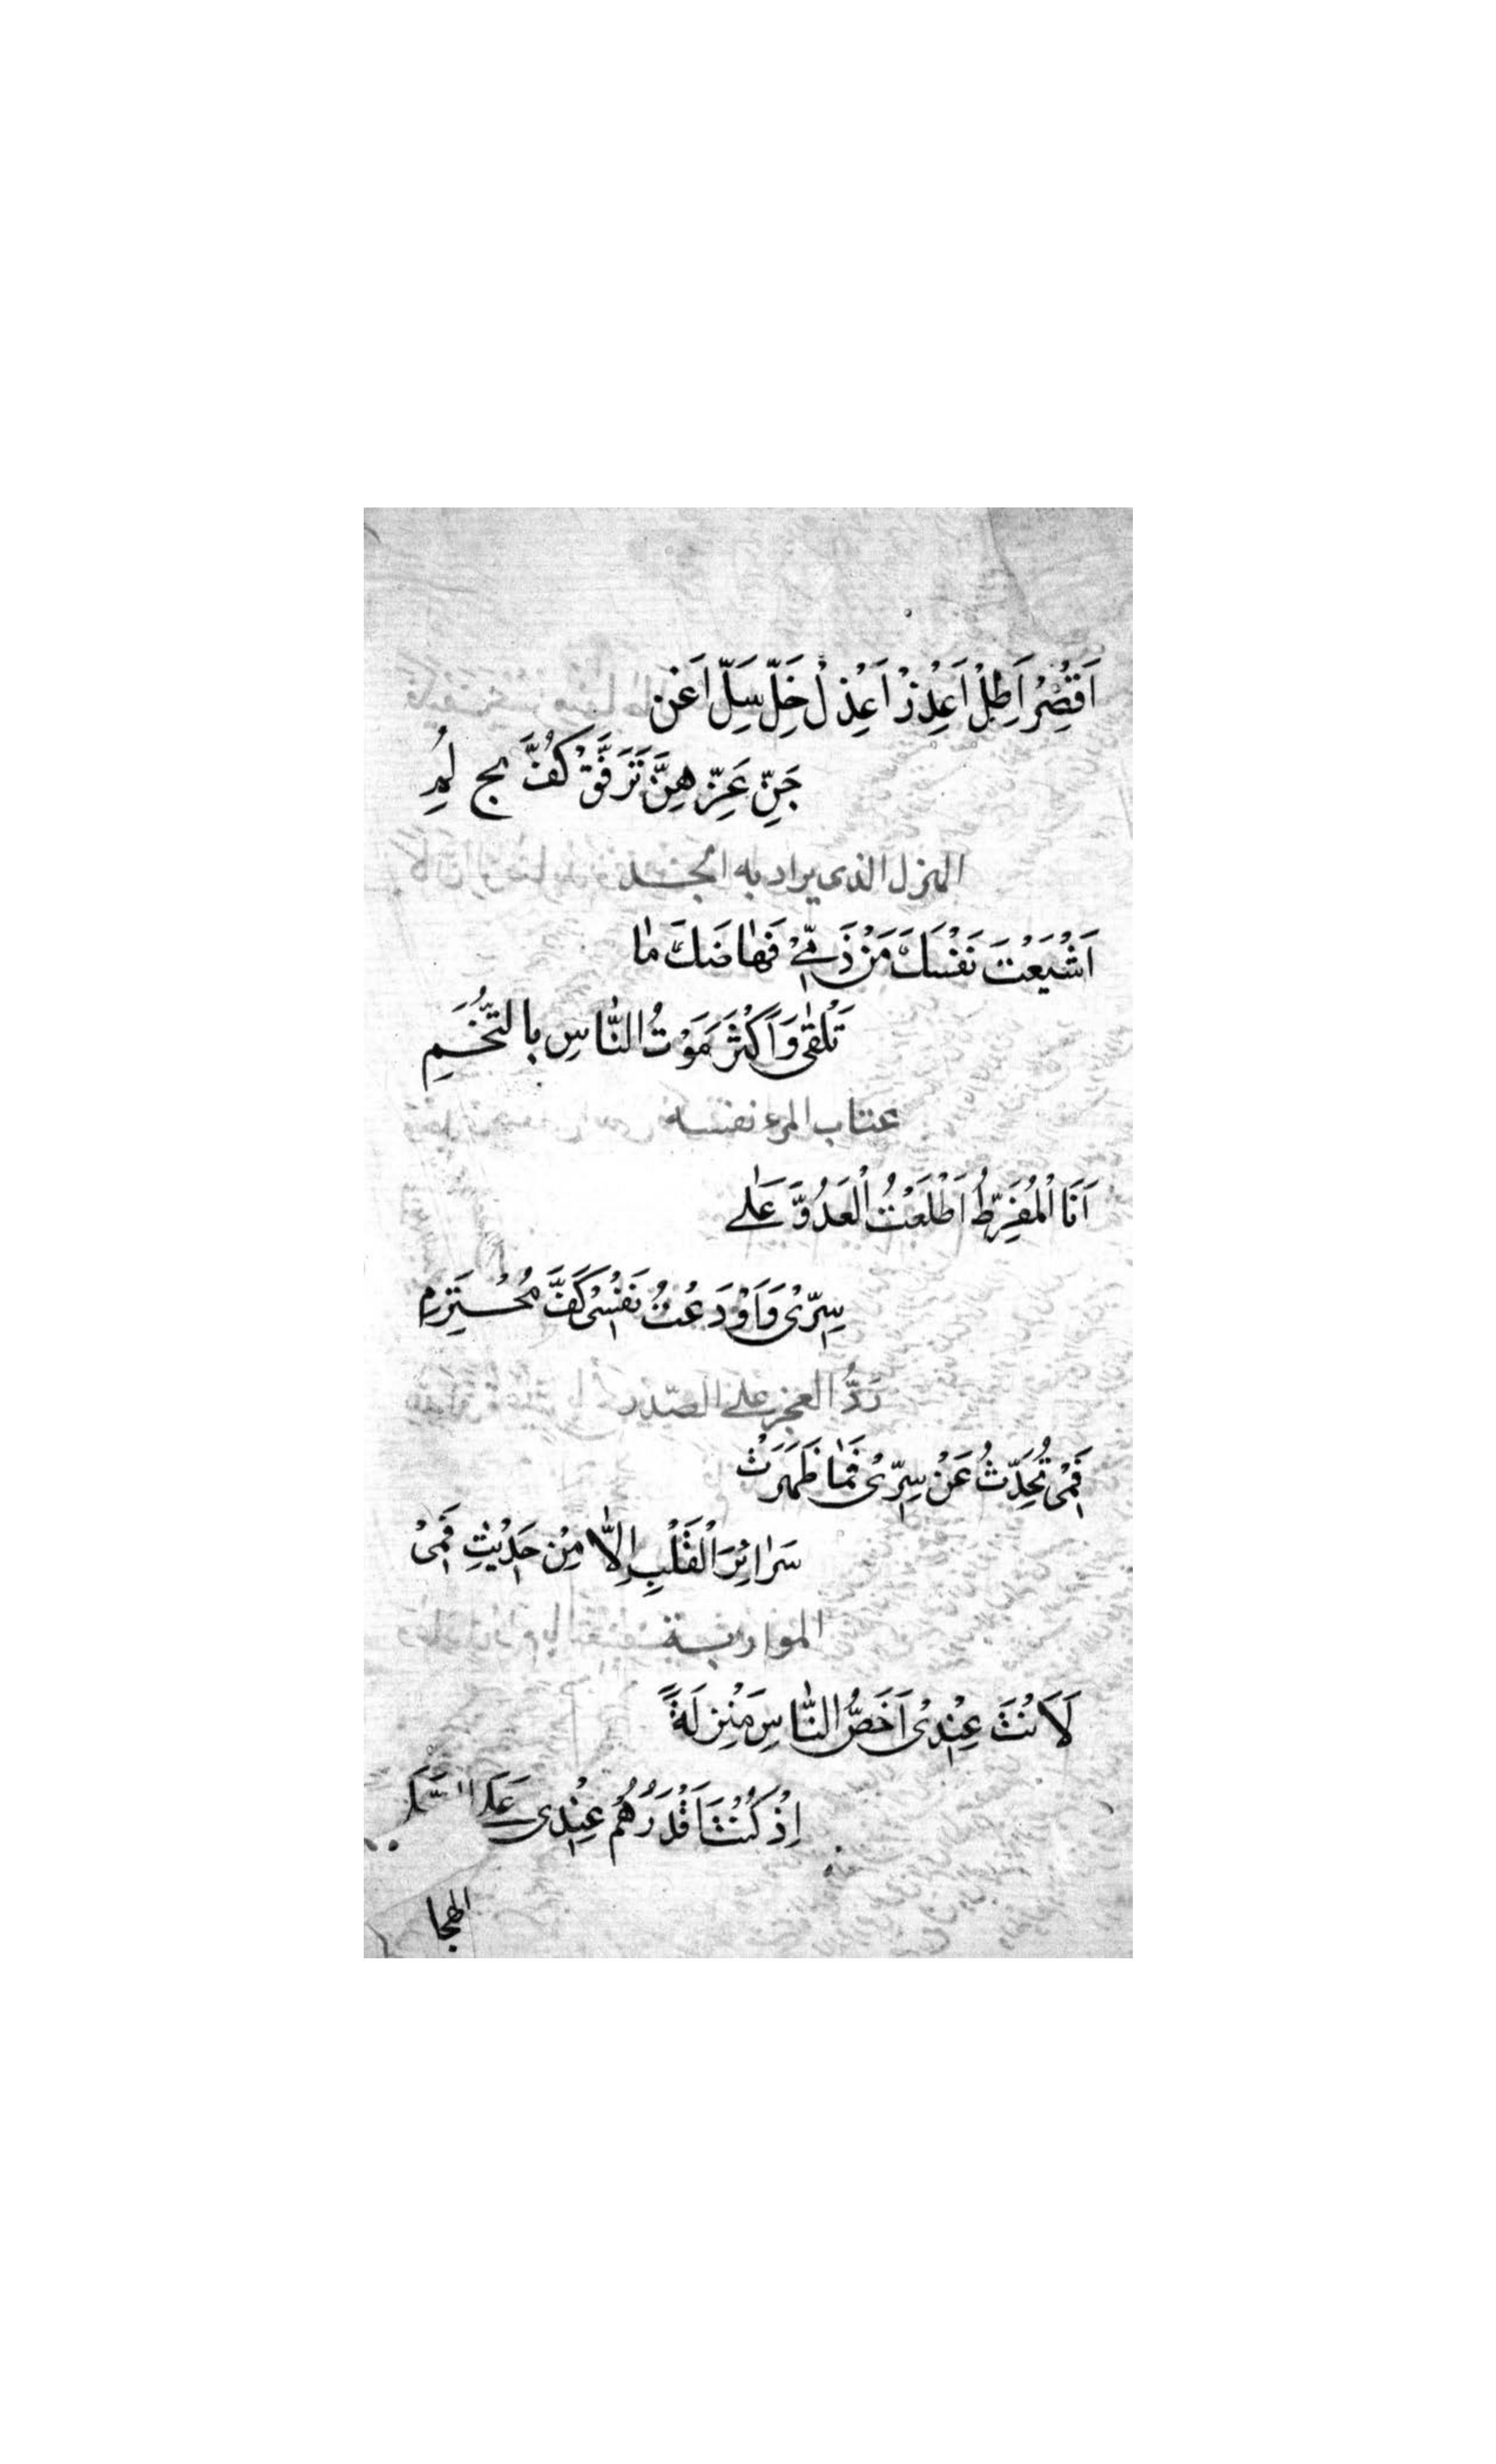 اَقْصِرْ اَطِلْ اَعْذِرْ اَعْذِلْ خَلِّ سَلِّ اَعِنْ
عَزِّ هَنِّ تَرَفَّقْ كُفَّ لُمِ
الهزل الذى يراد به الجد
اَشْبَعْتَ نَفْسَكَ مِنْ ذَمِّىْ فَهَاضَكَ مٰا
تَلْقٰى وَاَكْثَرُ مَوْتُ النَّاسِ بِالتُّخَمِ
عتاب المرء نفسه
اَنَا الْمُفَرِّطُ اَطْلَعْتُ الْعَدُوَّ عَلٰے
سِرِّىْ وَاَوْدَعْتُ نَفْسِىْ كَفَّ مُخْتَرِمِ
رَدُّ العجز علے الصّدر
فَمِىْ تُحَدِّثُ عَنْ سِرِّىْ فَمٰا ظَهَرَتْ
سَرٰائِرُ الْقَلْبِ اِلاّٰ مِنْ حَدِيْثِ فَمِىْ
المواربة
لَاَنْتَ عِنْدِىْ اَخَصُّ النّٰاسِ مَنْزِلَةً
اِذْ كُنْتَ اَقْدَرُهُمْ عِنْدِى عَلَى
الهجا